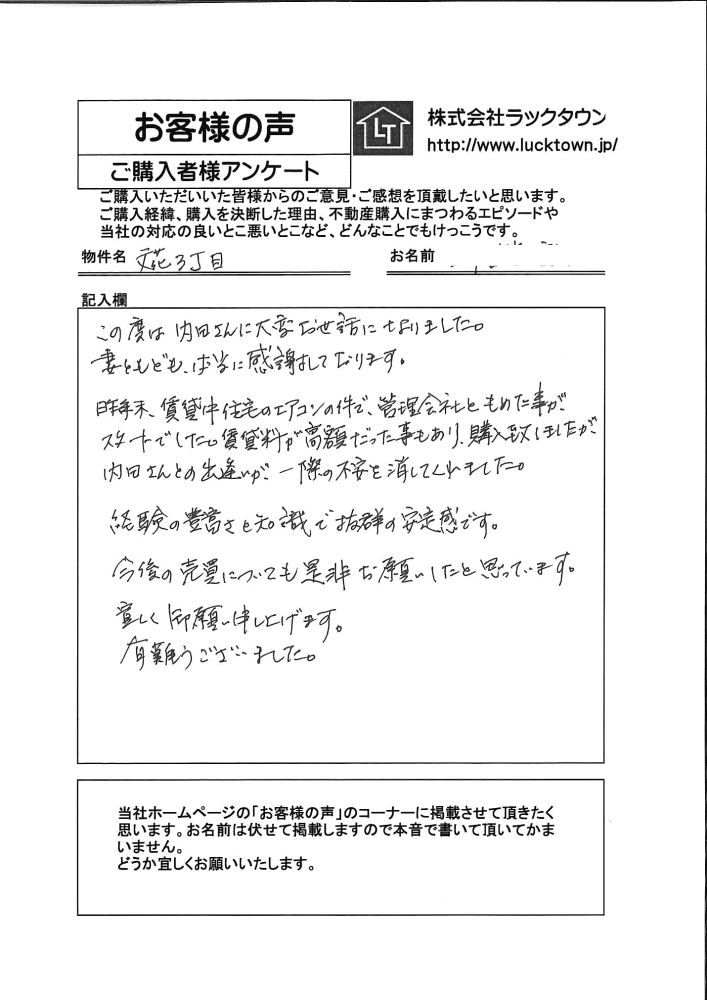 お客様の声
ご購入者様アンケート
LT
株式会社ラックタウン
http://www.lucktown.jp/
ご購入いただいいた皆様からのご意見・ご感想を頂戴したいと思います。
ご購入経緯、購入を決断した理由、不動産購入にまつわるエピソードや
当社の対応の良いとこ悪いとこなど、どんなことでもけっこうです。
物件名 文花3丁目
お名前
記入欄
この度は内田さんに大変お世話になりました。
妻ともども、本当に感謝しております。
昨年末、賃貸中住宅のエアコンの件で、管理会社ともめた事が
スタートでした。賃貸料が高額だった事もあり、購入致しましたが
内田さんとの出逢いが、一際の不安を消してくれました。
経験の豊富さと知識で抜群の安定感です。
今後の売買についても是非お願いしたと思っています。
宜しく御願い申し上げます。
有難うございました。
当社ホームページの「お客様の声」のコーナーに掲載させて頂きたく
思います。お名前は伏せて掲載しますので本音で書いて頂いてかま
いません。
どうか宜しくお願いいたします。